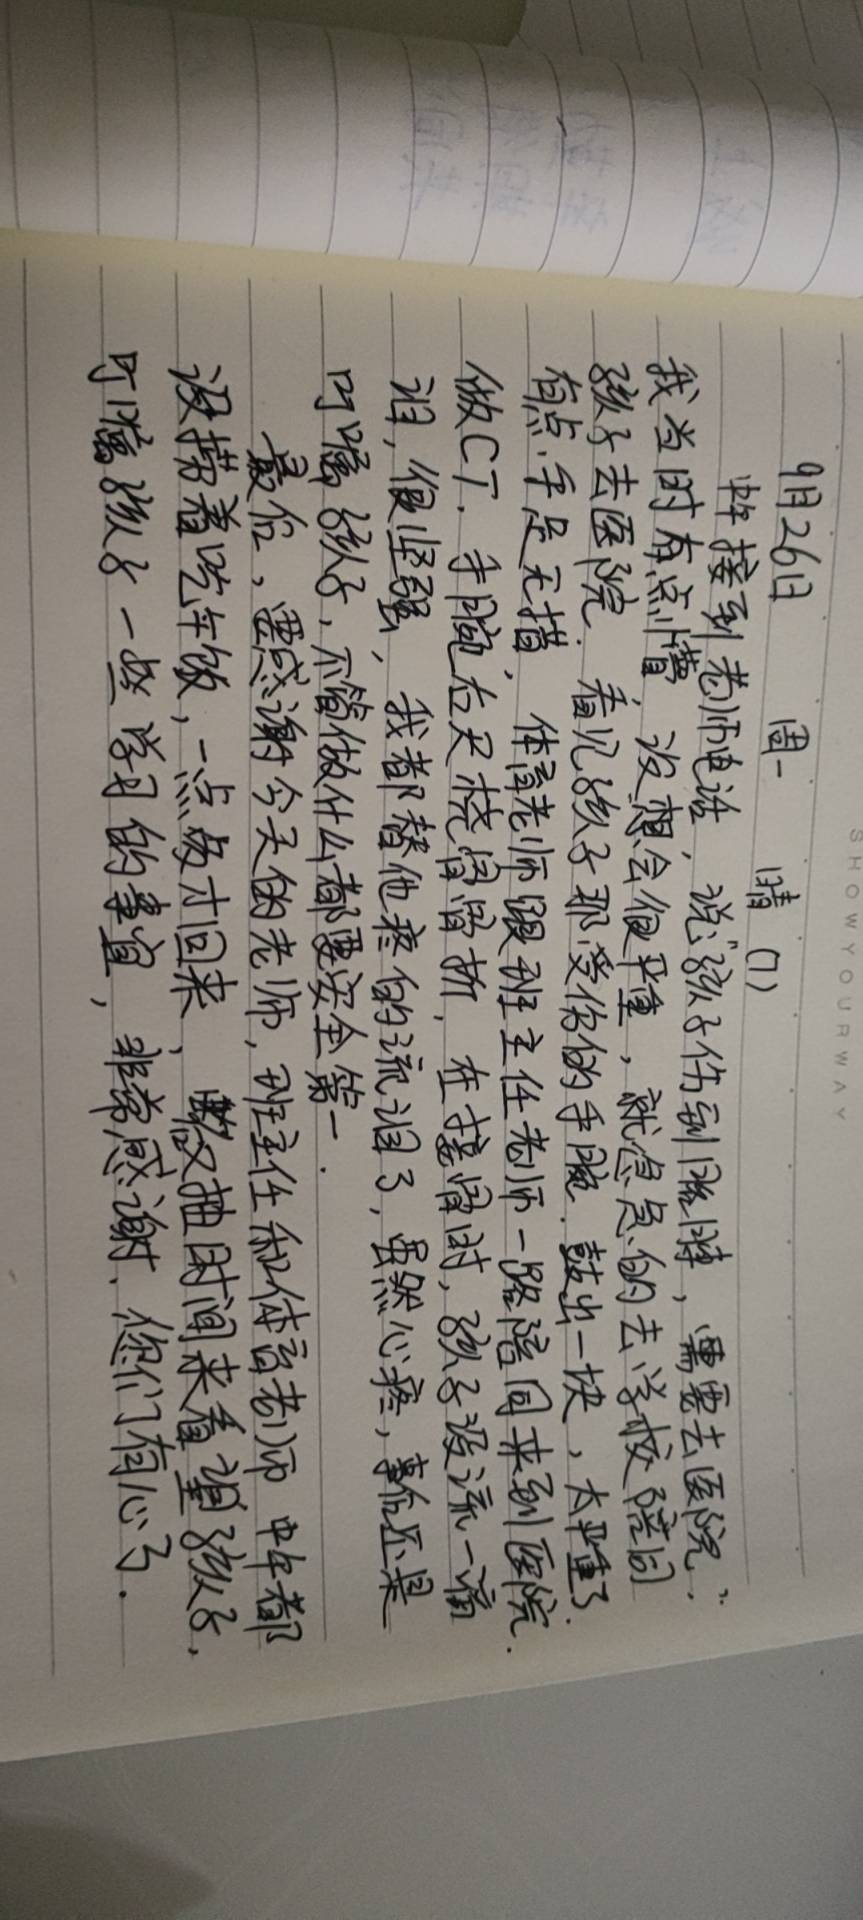 SHOWYOURWAY
9月26日 周一 晴 (7)
中午接到老师电话，说"孩子伤到胳膊，需要去医院"。
我当时有点懵，没想会很严重，就急急的去学校陪同
孩子去医院．看见孩子那受伤的手腕．鼓出一块，太严重了．
有点手足无措，体育老师跟班主任老师一路陪同来到医院．
做CT．手腕右尺桡骨骨折，在接骨时，孩子没流一滴
泪，很坚强，我都替他疼的流泪了，虽然心疼，事后还是
叮嘱孩子，不管做什么都要安全第一．
最后，要感谢今天的老师，班主任和体育老师 中午都
没捞着吃午饭，一点多才回来，晚饭抽时间来看望孩子，
叮嘱孩子一些学习的事宜，非常感谢．您们有心了．